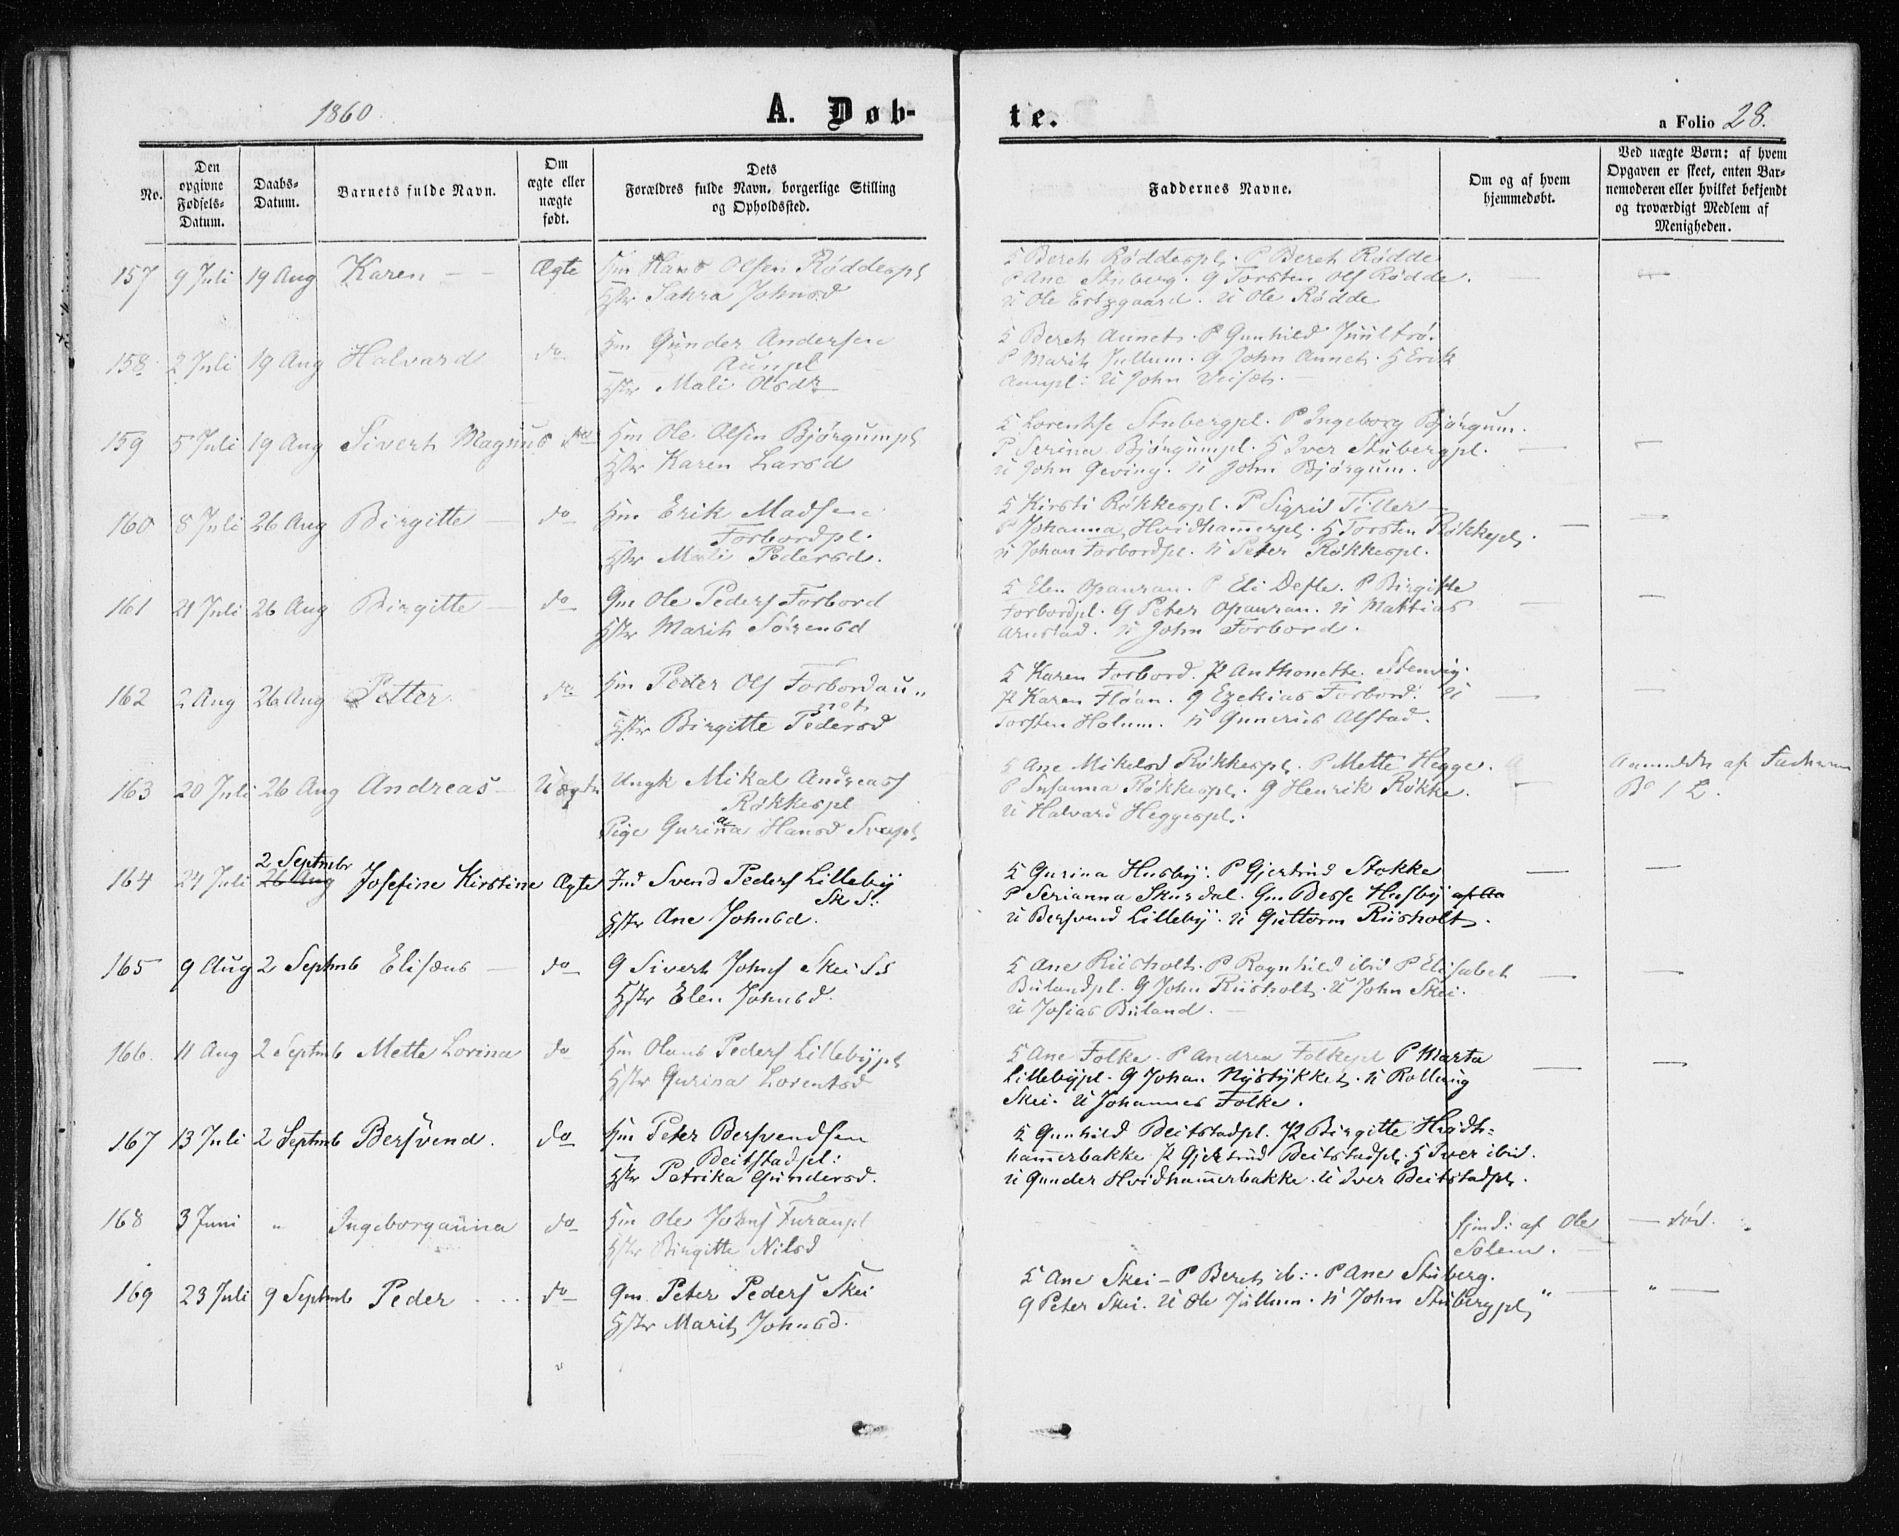 1860. A. Døb-
te. a Folio 28.
No.
Den opgivne Fødsels-Datum.
Daabs-Datum.
Barnets fulde Navn.
Om ægte eller uægte født.
Dets Forældres fulde Navn, borgerlige Stilling og Opholdssted.
Faddernes Navne.
Om og af hvem hjemmedøbt.
Ved uægte Børn: af hvem Opgaven er skeet, enten Barnemoderen eller hvilket bekjendt og troværdigt Medlem af Menigheden.
157 9 Juli 19 Aug Karen Ægte Hm Hans Olsen Røddespl
Hstr Sahra Johnsd
K Bereth Røddespl. P Bereth Rødde
P Ane Stuberg. G Torsten Ols Rødde.
U Ole Ertzgaard. U Ole Rødde
158. 2 Juli 19 Aug Halvard do Hm Gunder Andersen
Aunpl
Hstr Mali Olsdr
K Bereth Aunet. P Gunhild
P Marith Jullum. G John Aunet. H Erik
Aunpl: U John
159 5 Juli 19 Aug Sivert Magnus do Hm Ole Olsen Bjørgumpl
Hstr Karen Larsd
K Lorentse Stubergpl. P Ingeborg Bjørgum.
P Serina Bjørgumpl. H Iver Stubergpl.
U John Geving. U John Bjørgum.
160 8 Juli 26 Aug Birgitte do Hm Erik Madsen
Forbordpl.
Hstr Mali Pedersd.
K Kirsti Røkkespl. P Sigrid Tiller
P Johanna Hvidhamerpl. H Torsten Røkkespl.
U Johan Forbordpl. U Peter Røkkespl.
161 21 Juli 26 Aug Birgitte do Gm Ole Peders Forbord
Hstr Marith Sørensd
K Elen Opauran. P Eli Defle. P Birgitte
Forbordpl. G Peter Opauran. U Mattias
Arnstad. U John Forbord.
162 2 Aug 26 Aug Petter do Hm Peder Ols Forbordau-
net
Hstr Birgitte Pedersd
K Karen Forbord. P Anthonette Stenvig.
P Karen Fløan. G Ezekias Forbord. U
Torsten Holum. U Gunerius Alstad.
163 20 Juli 26 Aug Andreas Uægte Ungk Mikal Andreass
Røkkespl
Pige Gurina Hansd
K Ane Mikelsd Røkkespl. P Mette Hegge.
P Susanna Røkkespl. G Henrik Røkke.
U Halvard Heggespl.
Anmeldt af
164 24 Juli 2 Septmbr
26 Aug Josefine Kirstine Ægte Ind Svend Peders Lilleby
Sk S:
Hstr Ane Johnsd.
K Gurina Husby. P Gjertrud Stokke
P Serianna Skursdal. Gm Besse Husby af Aa
U Bersvend Lilleby. U Guttorm Riisholt.
165 9 Aug 2 Septmb Elisæus do G Sivert Johns Skei SS
Hstr Elen Johnsd.
K Ane Riisholt. P Ragnhild ibid P Elisabet
Bulandpl. G John Riisholt. U John Skei.
U Josias Buland.
166. 11 Aug 2 Septmb Mette Lovina do Hm Olaus Peders Lillebypl
Hstr Gurina Lorentsd
K Ane Folke. P Andrea Folkepl P Marta
Lillebypl. G Johan Nystykket. U Rollaug
Skei. U Johannes Folke.
167 13 Juli 2 Septmb Bersvend. do Hm Peter Bersvendsen
Beitstadpl:
Hstr Petrika Gundersd.
K Gunhild Beitstadpl. P Birgitte Hvidt-
hamerbakke P Gjertrud Beitstadpl. H Iver ibid.
U Gunder Hvidhamerbakke. U Iver Beitstadpl.
168 3 Juni " Ingeborganna do Hm Ole Johns Furanpl
Hstr Birgitte Nilsd
hjmd: af Ole
Solem.
død.
169 23 Juli 9 Septmb Peder do Gm. Peter Peders Skei
Hstr Marit Johnsd.
K Ane Skei - P Beret ib: P Ane Stuberg.
G Peter Skei. U Ole Jullum. U John Stubergpl